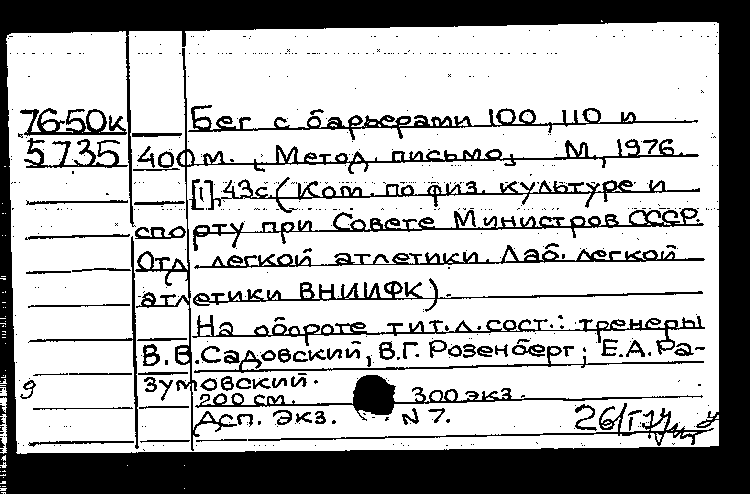 76-50к Бег с барьерами 100, 110 и
5735 400 м. [Метод. письмо]. М., 1976.
[1], 43 с. (Ком. по физ. культуре и
спорту при Совете Министров СССР.
Отд. легкой атлетики. Лаб. легкой
атлетики ВНИИФК).
На обороте тит. л. сост.: тренеры
В.В. Садовский, В.Г. Розенберг; Е.А. Ра-
зумовский.
9
200 см. 300 экз.
Асп. экз. N 7.